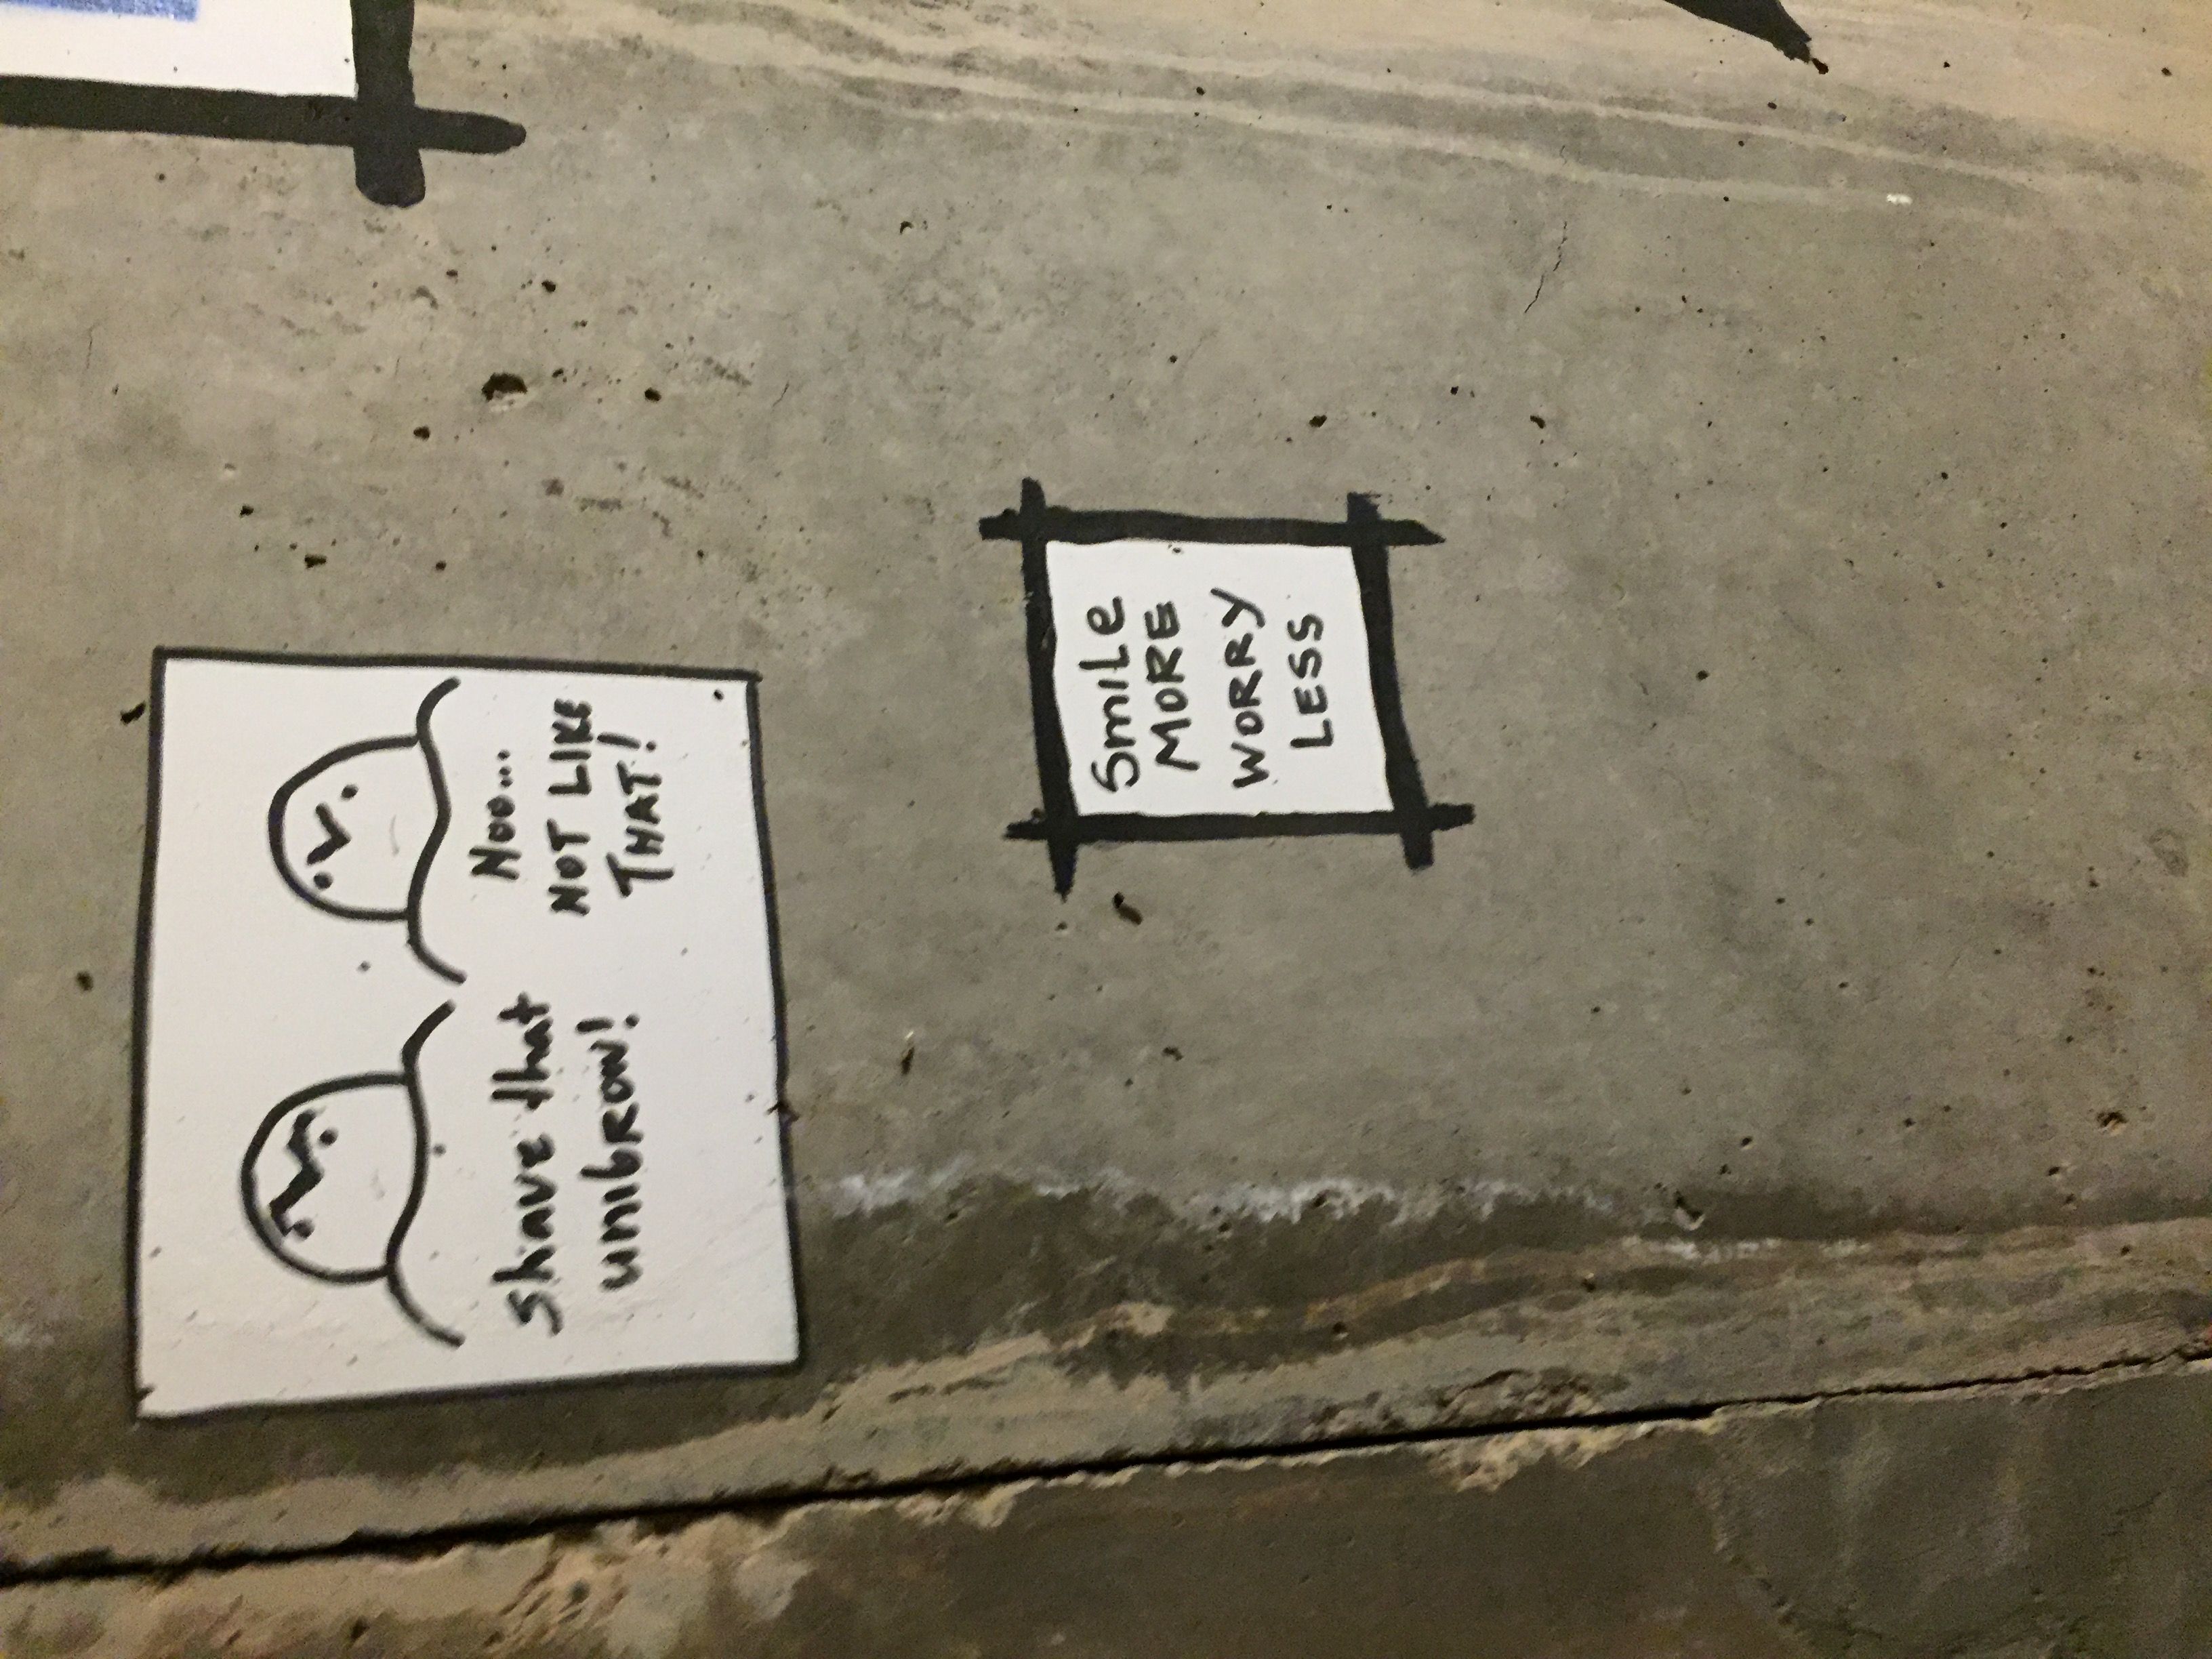 shave that
unibrow!
Noo...
NOT LIKE
THAT!
Smile
MORE
WORRY
LESS